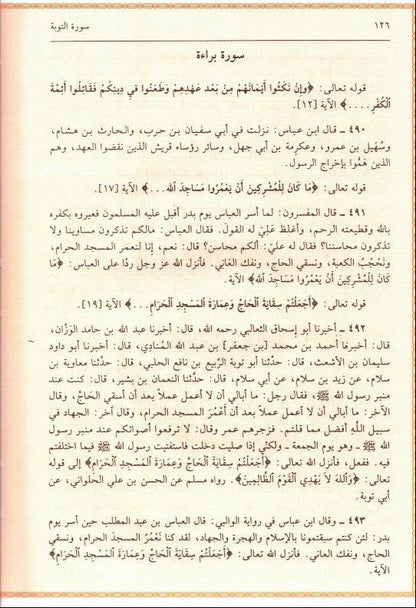 ١٢٦ سورة التوبة
سورة براءة
قوله تعالى: ﴿وإِنْ نَكَثُوا أَيْمَانَهُمْ مِنْ بَعْد عَهْدِهِمْ وَطَعَنُوا في دِينِكُمْ فَقَاتِلُوا أَئِمَّةَ
الْكُفْرِ....﴾ الآية [١٢].
٤٩٠ ـ قال ابن عباس: نزلت في أبي سفيان بن حرب، والحارث بن هشام،
وسُهَيل بن عمرو، وعكرمة بن أبي جهل، وسائر رؤساء قريش الذين نقضوا العهد، وهم
الذين هَمُّوا بإخراج الرسول.
قوله تعالى: ﴿مَا كَانَ لِلْمُشْرِكِينَ أَنْ يَعْمُرُوا مَسَاجِدَ اللَّه...﴾ الآية [١٧].
٤٩١ ـ قال المفسرون: لما أسر العباس يوم بدر أقبل عليه المسلمون فعيروه بكفره
بالله وقطيعته الرحم، وأغلظ عَليّ له القولَ. فقال العباس: مالكم تذكرون مساوينا ولا
تذكرون محاسننا؟ فقال له عليّ: ألكم محاسن؟ قال: نعم، إنا لنعمر المسجد الحرام،
ونَحْجُبُ الكعبة، ونسقي الحاج، ونفك العَانِي. فأنزل الله عز وجل ردّا على العباس: ﴿مَا
كَانَ لِلْمُشْرِكِينَ أَنْ يَعْمُرُوا مَسَاجِدَ اللَّه﴾ الآية.
قوله تعالى: ﴿أَجَعَلْتُمْ سِقَايَةَ الْحَاجِّ وَعِمَارَةَ الْمَسْجِدِ الْحَرَامِ...﴾ الآية [١٩].
٤٩٢ ـ أخبرنا أبو إسحاق الثعالبي رحمه الله، قال: أخبرنا عبد الله بن حامد الوَزَّان،
قال: أخبرنا أحمد بن محمد [بن جعفر] بن عبد الله المُنادِي، قال: أخبرنا أبو داود
سليمان بن الأشعث، قال: حدَّثنا أبو توبة الرَّبيع بن نافع الحلبي، قال: حدَّثنا معاوية بن
سلام، عن زيد بن سلام، عن أبي سلام، قال: حدَّثنا النعمان بن بشير، قال: كنت عند
منبر رسول الله ﷺ، فقال رجل: ما أبالي أن لا أعمل عملاً بعد أن أسقي الحاجّ، وقال
الآخر: ما أبالي أن لا أعمل عملاً بعد أن أعْمُرَ المسجد الحرام، وقال آخر: الجهاد في
سبيل اللَّهِ أفضل مما قلتم. فزجرهم عمر وقال: لا ترفعوا أصواتكم عند منبر رسول
الله ﷺ ـ وهو يوم الجمعة ـ ولكنِّي إذا صليت دخلت فاستفتيت رسول الله ﷺ فيما اختلفتم
فيه. ففعل، فأنزل الله تعالى: ﴿أَجَعَلْتُمْ سِقَايَةَ الْحَاجِّ وَعِمَارَةَ الْمَسْجِدِ الْحَرَامِ﴾ إلى قوله
تعالى: ﴿وَاللَّهُ لاَ يَهْدِي الْقَوْمَ الظَّالِمِينَ﴾. رواه مسلم عن الحسن بن علي الحلواني، عن
أبي توبة.
٤٩٣ ـ وقال ابن عباس في رواية الوالبي: قال العباس بن عبد المطلب حين أسر يوم
بدر: لئن كنتم سبقتمونا بالإسلام والهجرة والجهاد، لقد كنا نَعْمُرُ المسجدَ الحرام، ونسقي
الحاج، ونفك العاني. فأنزل الله تعالى: ﴿أَجَعَلْتُمْ سِقَايَةَ الْحَاجِّ وَعِمَارَةَ الْمَسْجِدِ الْحَرَامِ﴾
الآية.